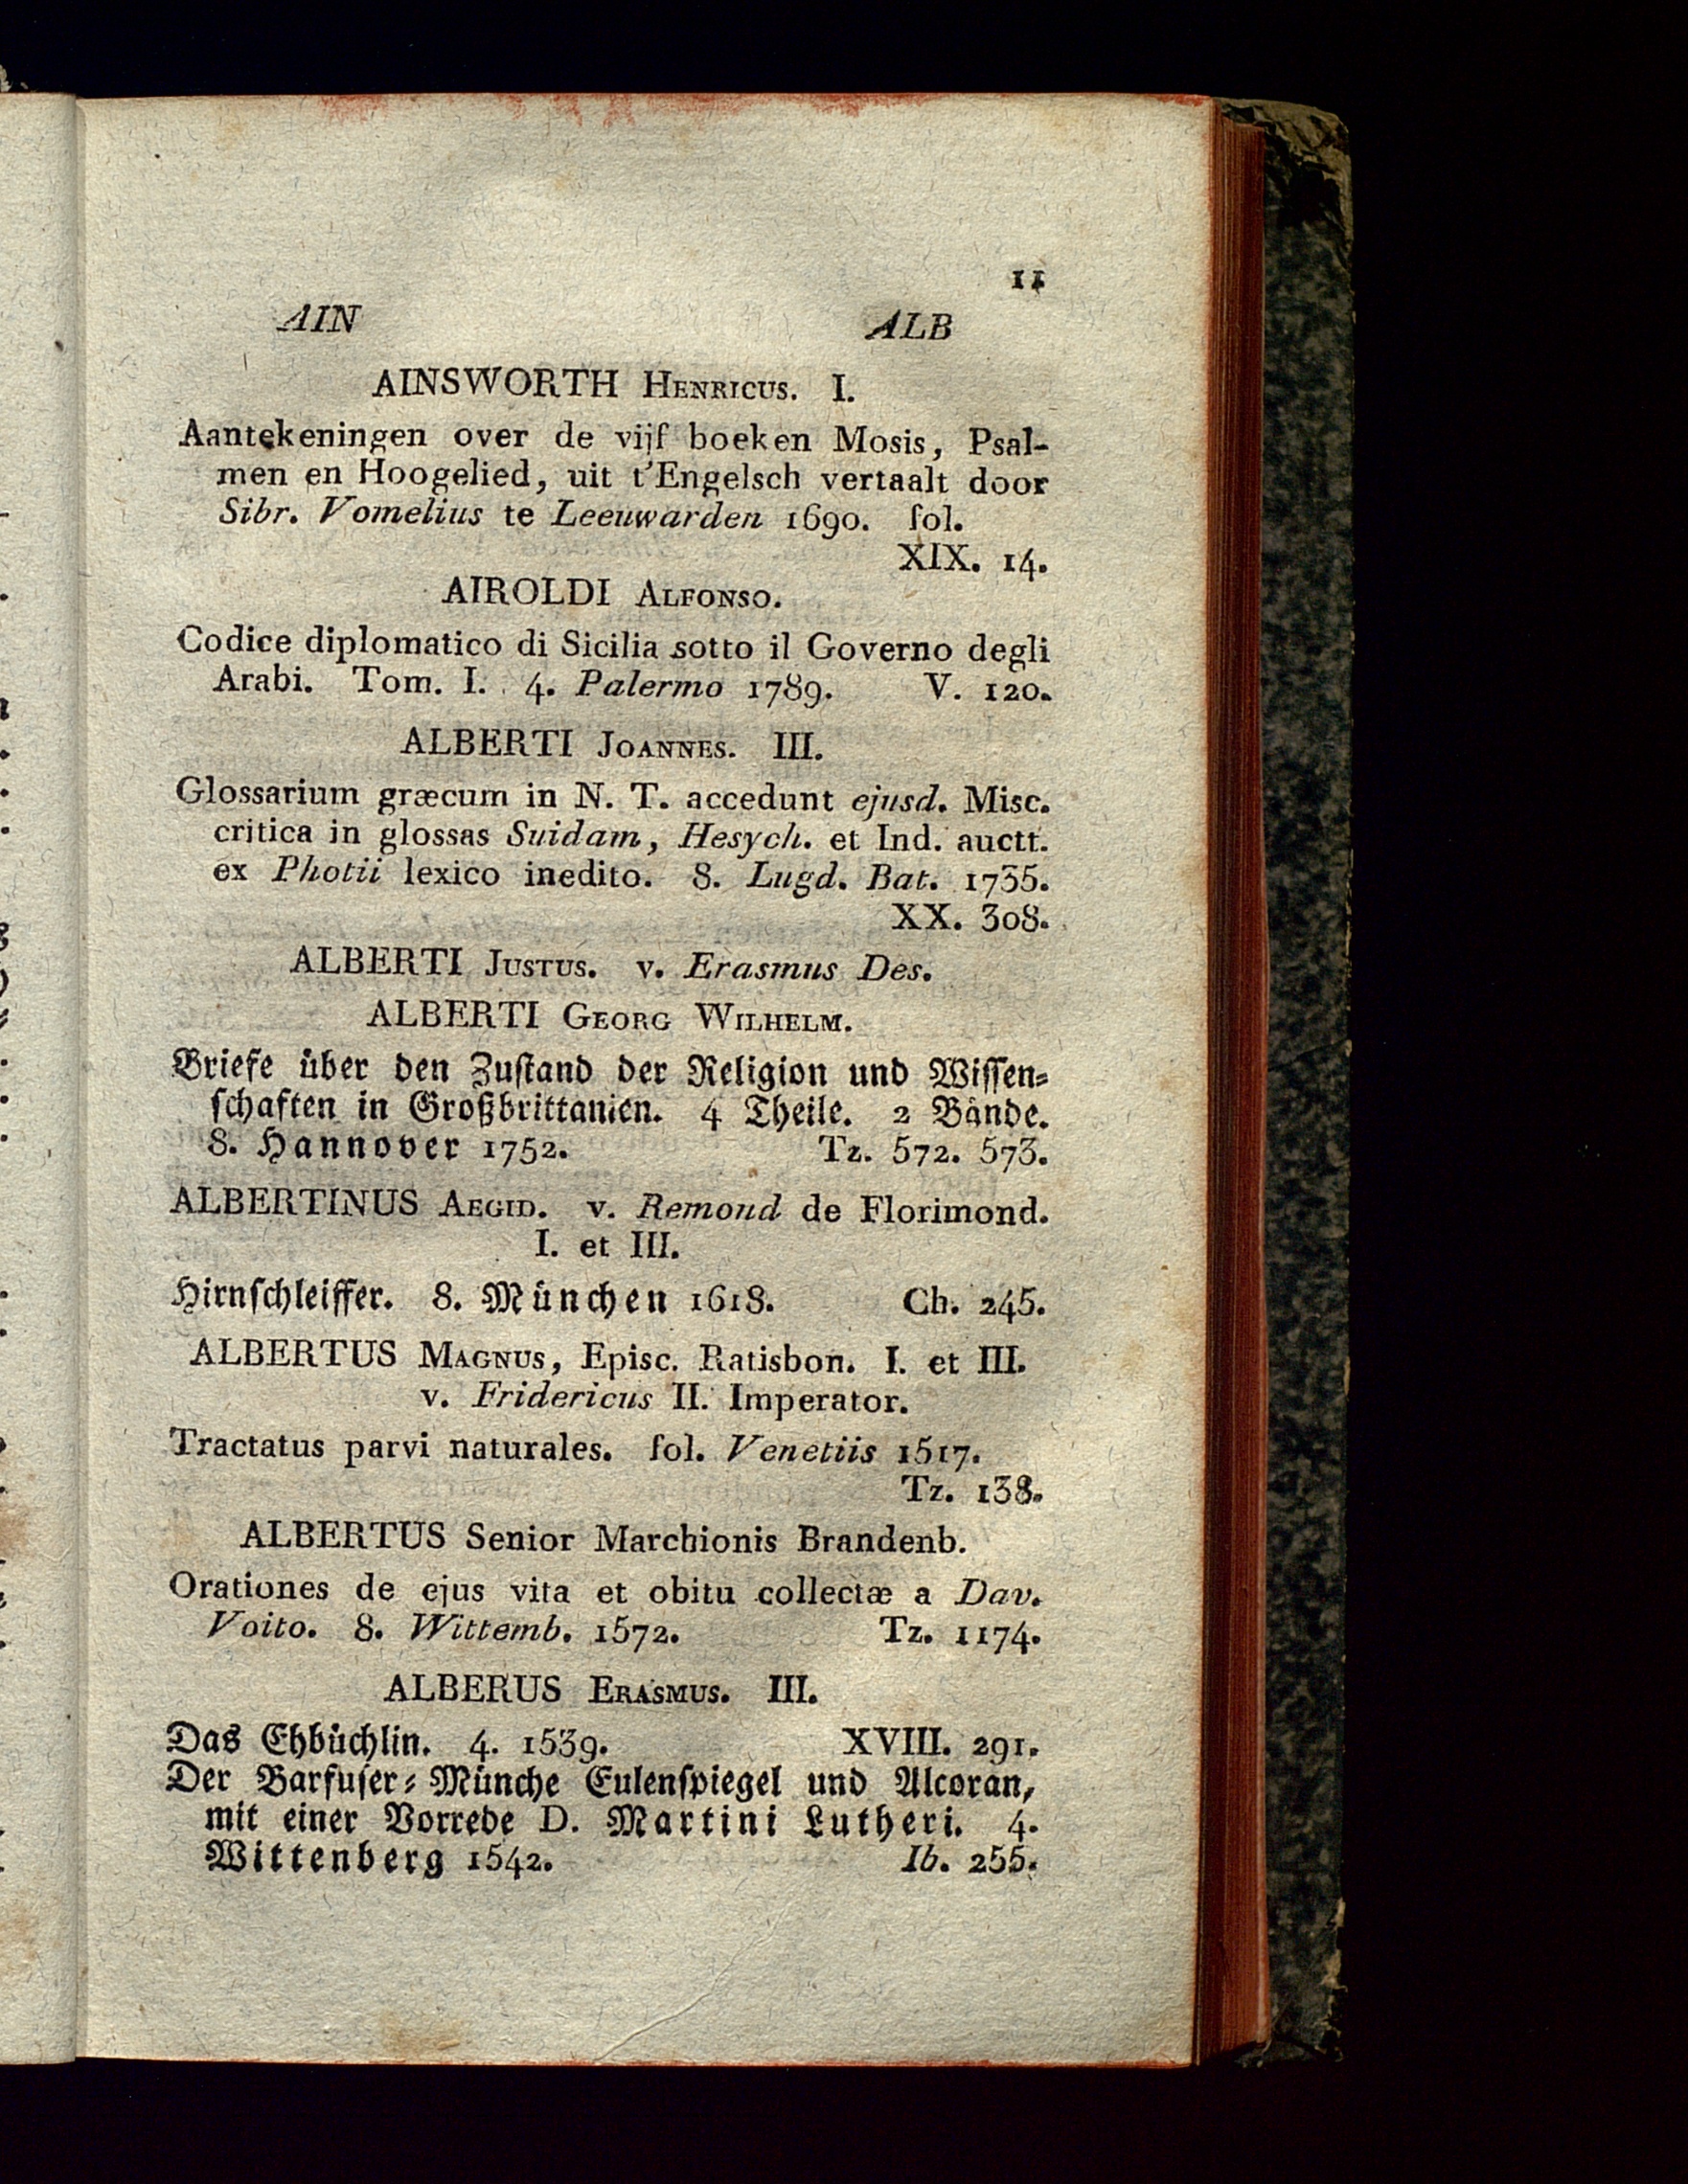 11
AIN ALB
AINSWORTH HENRICUS. I.
Aantekeningen over de vijf boeken Mosis, Psal-
men en Hoogelied, uit t'Engelsch vertaalt door
Sibr. Vomelius te Leeuwarden 1690. fol.
XIX. 14.
AIROLDI ALFONSO.
Codice diplomatico di Sicilia sotto il Governo degli
Arabi. Tom. I. 4. Palermo 1789. V. 120.
ALBERTI JOANNES. III.
Glossarium græcum in N. T. accedunt ejusd. Misc.
critica in glossas Suidam, Hesych. et Ind. auctt.
ex Photii lexico inedito. 8. Lugd. Bat. 1735.
XX. 308.
ALBERTI JUSTUS. v. Erasmus Des.
ALBERTI GEORG WILHELM.
Briefe über den Zustand der Religion und Wissen-
schaften in Großbrittanien. 4 Theile. 2 Bände.
8. Hannover 1752. Tz. 572. 573.
ALBERTINUS AEGID. v. Remond de Florimond.
I. et III.
Hirnschleiffer. 8. München 1618. Ch. 245.
ALBERTUS MAGNUS, Episc. Ratisbon. I. et III.
v. Fridericus II. Imperator.
Tractatus parvi naturales. fol. Venetiis 1517.
Tz. 138.
ALBERTUS Senior Marchionis Brandenb.
Orationes de ejus vita et obitu collectæ a Dav.
Voito. 8. Wittemb. 1572. Tz. 1174.
ALBERUS ERASMUS. III.
Das Ehbüchlin. 4. 1539. XVIII. 291.
Der Barfuser-Münche Eulenspiegel und Alcoran,
mit einer Vorrede D. Martini Lutheri. 4.
Wittenberg 1542. Ib. 255.